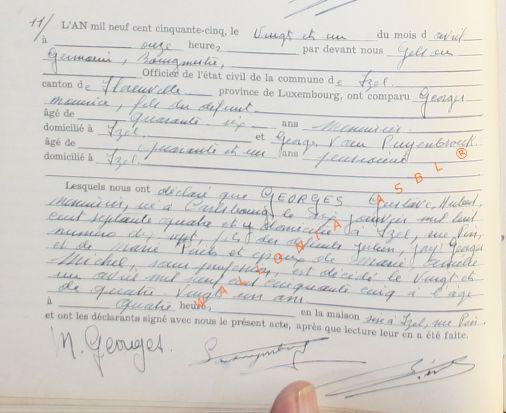 11/
L'AN mil neuf cent cinquante-cinq, le Vingt et un du mois d'avril
à onze heures, par devant nous Jules
Germain, Bourgmestre,
Officier de l'état civil de la commune de Izel.
canton de Florenville province de Luxembourg, ont comparu Georges
Maurice, fils du défunt
âgé de quarante six ans Menuisier.
domicilié à Izel. et Georges Van Puyenbrouck
âgé de quarante et un ans pensionné
domicilié à Izel.
Lesquels nous ont déclaré que GEORGES Gustave, Hubert,
menuisier, né à Carlsbourg le six janvier mil huit
cent septante quatre et y domicilié à Izel, rue Pin,
numéro dix sept, fils des défunts Julien, Georges
et de Marie et époux de Marie,
Michel, sans profession, est décédé le Vingt et
un avril mil neuf cent cinquante cinq à l'âge
de quatre vingt un ans
à quatre heures, en la maison sise à Izel, rue Pin.
et ont les déclarants signé avec nous le présent acte, après que lecture leur en a été faite.
M. Georges.
WALLONIA ASBL ®